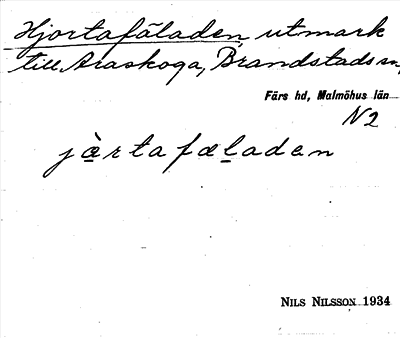 Hjortafäladen utmark
till Araskoga, Brandstads sn,
Färs hd, Malmöhus län
N2
jàrtafæladen
NILS NILSSON 1934